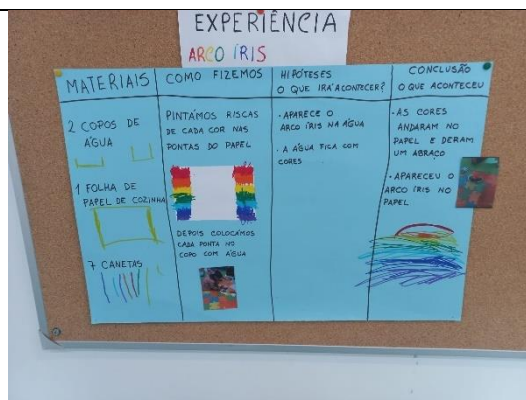 EXPERIÊNCIA
ARCO ÍRIS
MATERIAIS
2 COPOS DE
ÁGUA
1 FOLHA DE
PAPEL DE COZINHA
7 CANETAS
COMO FIZEMOS
PINTÁMOS RISCAS
DE CADA COR NAS
PONTAS DO PAPEL
DEPOIS COLOCÁMOS
CADA PONTA NO
COPO COM ÁGUA
HIPÓTESES
O QUE IRÁ ACONTECER?
• APARECE O
ARCO ÍRIS NA ÁGUA
• A ÁGUA FICA COM
CORES
CONCLUSÃO
O QUE ACONTECEU
• AS CORES
ANDARAM NO
PAPEL E DERAM
UM ABRAÇO
• APARECEU O
ARCO ÍRIS NO
PAPEL